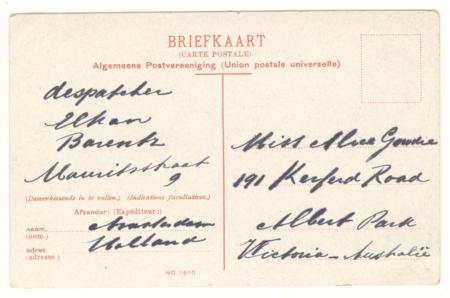 BRIEFKAART
(CARTE POSTALE)
Algemeene Postvereeniging (Union postale universelle)
despatcher
Elkan
Barents
Mauritsstraat
9
(Desverkiezende in te vullen.) (Indications facultatives.)
Afzender: (Expéditeur:)
naam. Amsterdam
(nom.)
adres. Holland
(adresse)
Miss Alice Gowdie
191 Kerferd Road
Albert Park
Victoria - Australië
NO. 1610